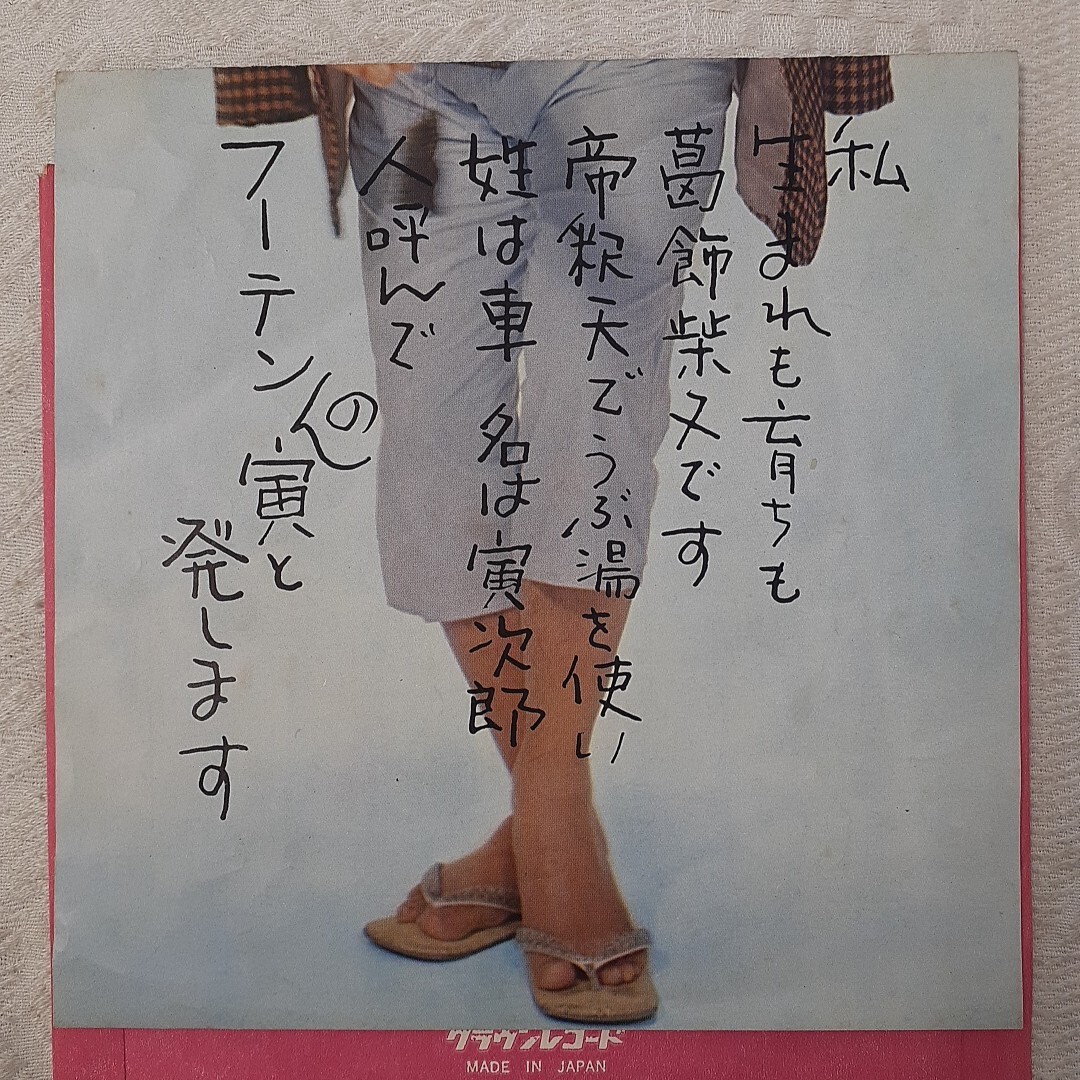 私
生まれも育ちも
葛飾柴又です
帝釈天でうぶ湯を使い
姓は車 名は寅次郎
人呼んで
フーテンの寅と
発します
クラウンレコード
MADE IN JAPAN